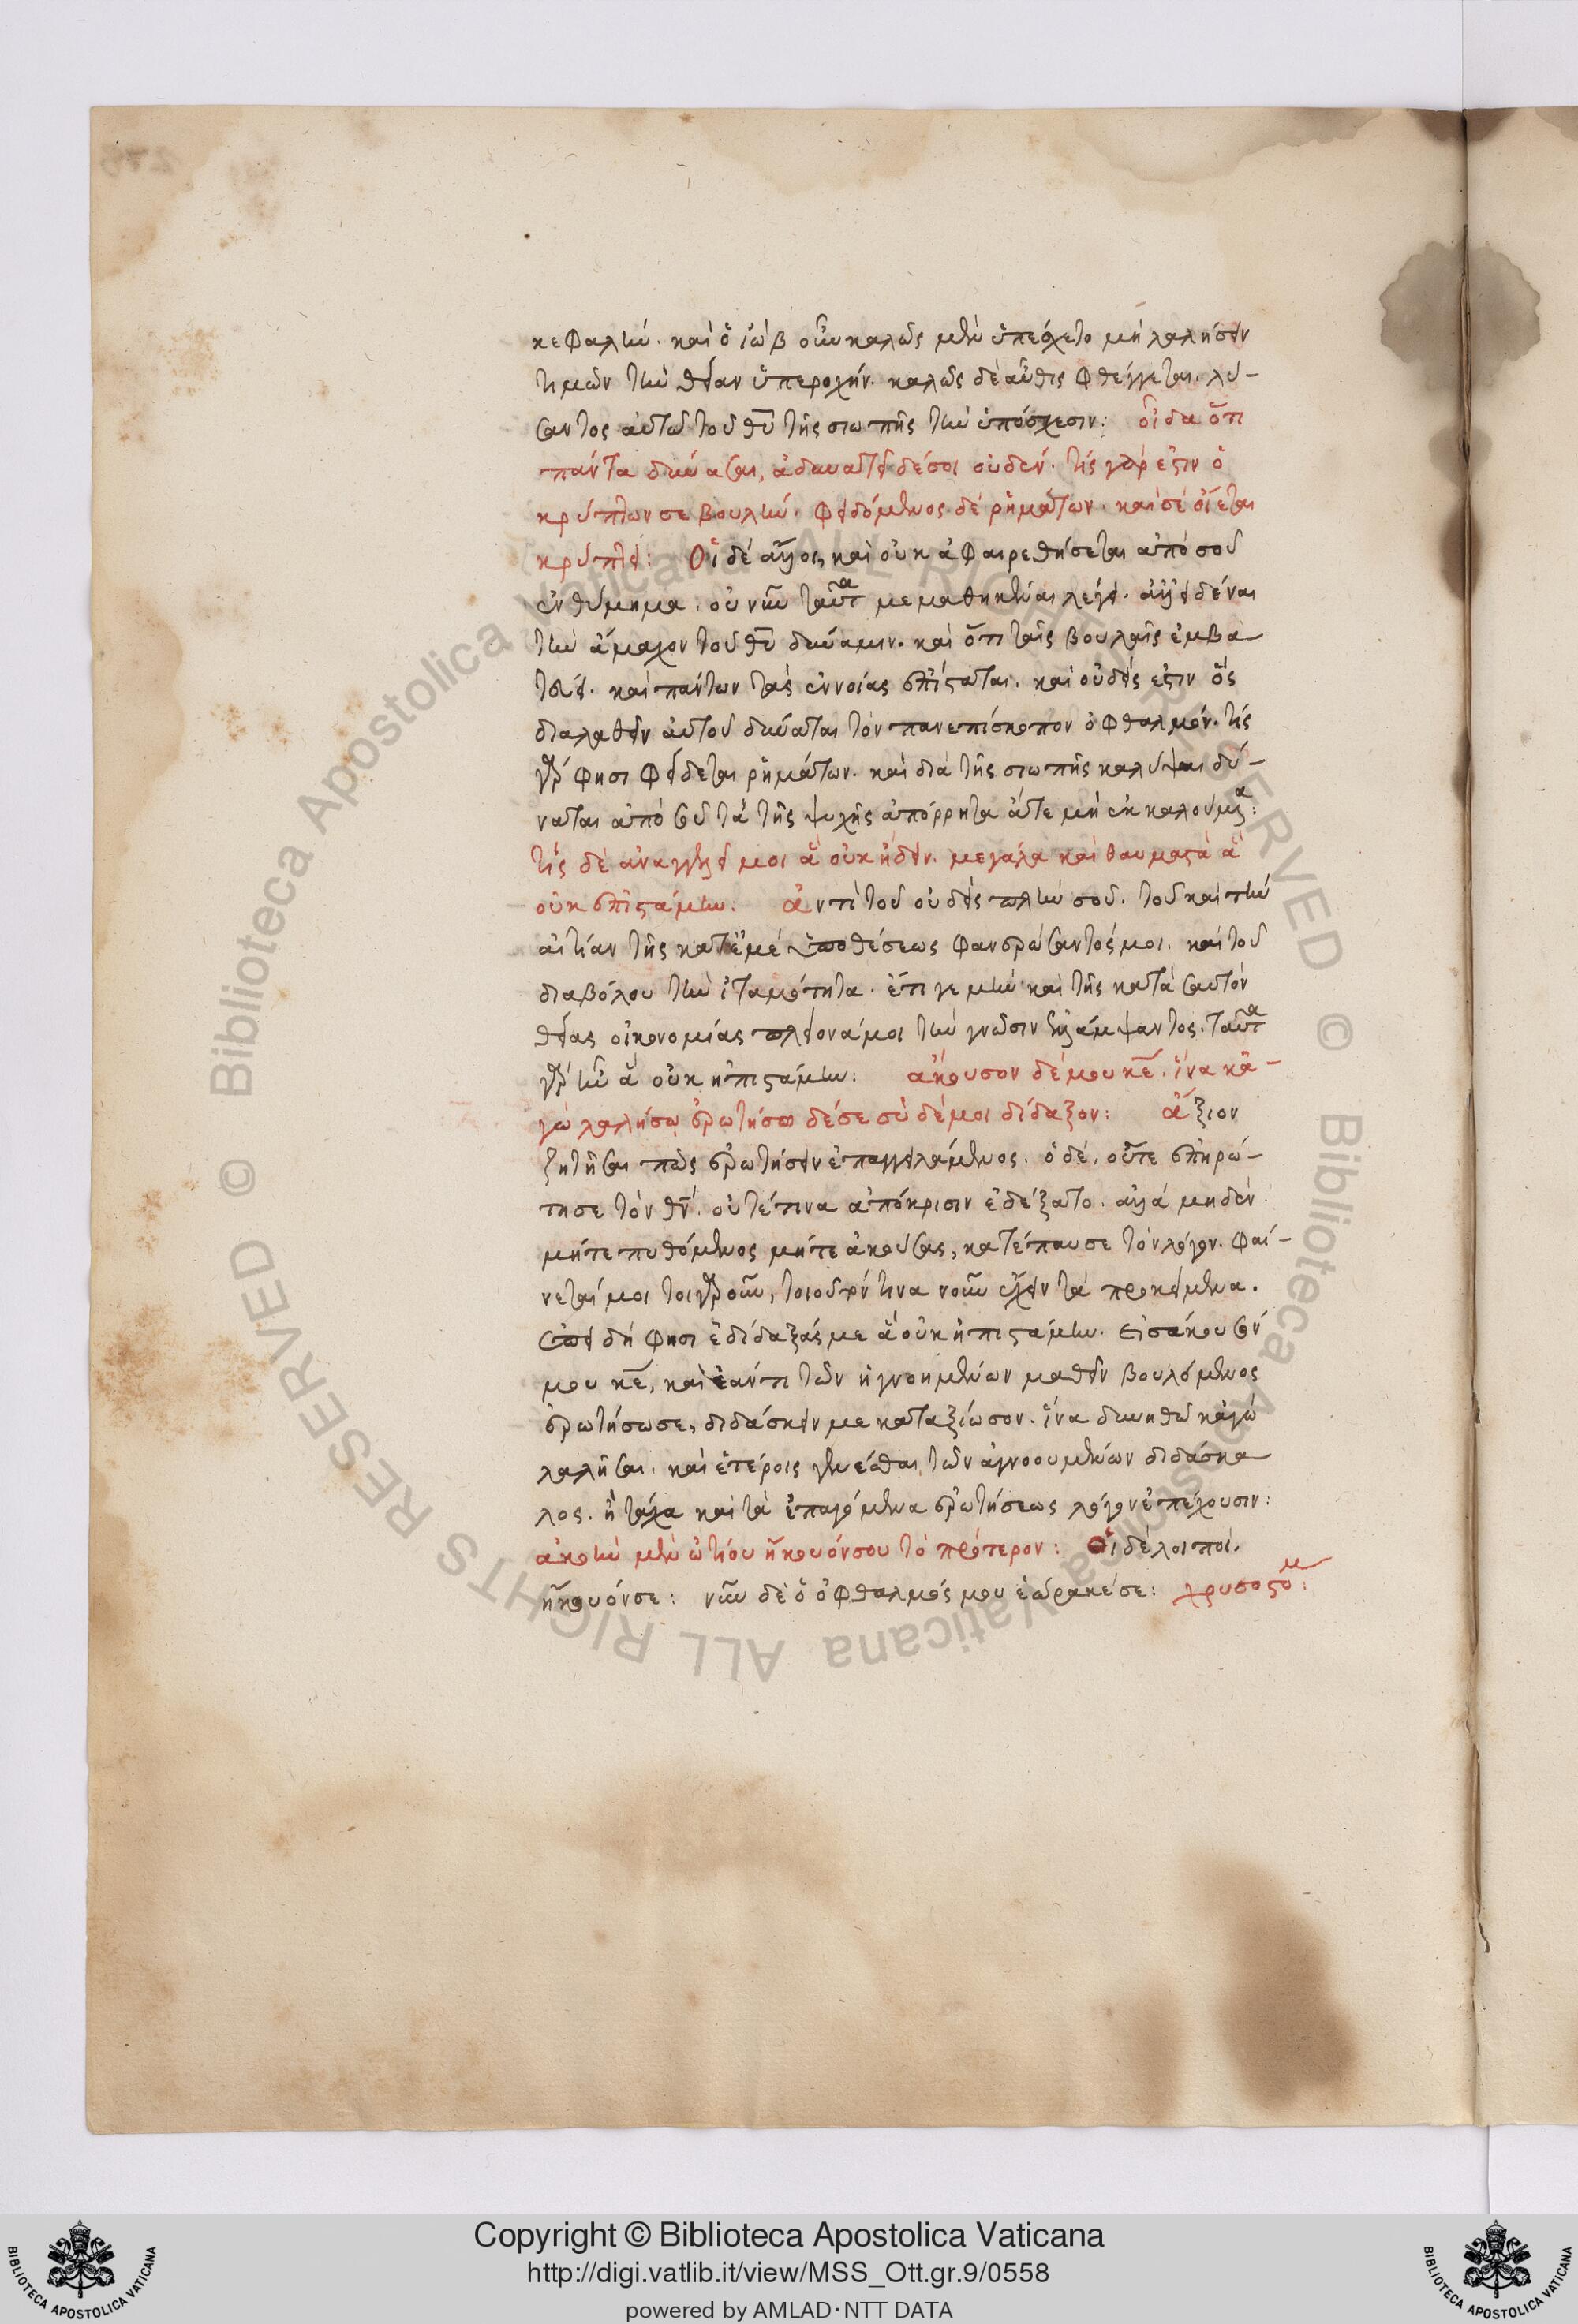 κεφαλήν. καὶ ὁ ἰὼβ οὖν καλῶς μὲν ὑπέσχετο μὴ λαλήσειν
τιμῶν τὴν θείαν ὑπεροχήν. καλῶς δὲ αὖθις φθέγγεται. λύ-
σαντος αὐτῶ τοῦ θυ τῆς σιωπῆς τὴν ὑπόσχεσιν: οἶδα ὅτι
πάντα δύνασαι, ἀδυνατεῖ δέ σοι οὐδέν. τίς γάρ ἐστιν ὁ
κρύπτων σε βουλήν. φειδόμενος δέ ῥημάτων. καὶ σέ οἴεται
κρύπτειν: Οἱ δέ ἄλλοι, καὶ οὐκ ἀφαιρεθήσεται ἀπό σοῦ
ἐνθύμημα. οὐ νῦν ταῦτα μεμαθηκέναι λέγει. ἀλλ' εἰδέναι
τὴν ἄμαχον τοῦ θυ δύναμιν. καὶ ὅτι ταῖς βουλαῖς ἐμβα
τεύει. καὶ πάντων τὰς ἐννοίας ἐπίσταται. καὶ οὐδείς ἐστιν ὅς
διαλαθεῖν αὐτοῦ δύναται τὸν πανεπίσκοπον ὀφθαλμόν. τίς
γάρ φησι φείδεται ῥημάτων. καὶ διὰ τῆς σιωπῆς καλύψαι δύ-
ναται ἀπὸ σοῦ τὰ τῆς ψυχῆς ἀπόρρητα ἅτε μὴ ἐκκαλούμενα:
τίς δὲ ἀναγγελεῖ μοι ἃ οὐκ ᾔδειν. μεγάλα καὶ θαυμαστὰ ἃ
οὐκ ἐπιστάμην. ἀντὶ τοῦ οὐδείς πλήν σοῦ. τοῦ καὶ τὴν
αἰτίαν τῆς κατ' ἐμέ ὑποθέσεως φανερώσαντός μοι. καὶ τοῦ
διαβόλου τὴν ἰταμότητα. ἔτι γε μὴν καὶ τῆς κατὰ σαυτόν
θείας οἰκονομίας πλείονά μοι τὴν γνῶσιν ἐλλάμψαντος. ταῦτα
γάρ ἦν ἃ οὐκ ἠπιστάμην: ἄκουσον δέ μου κε. ἵνα κἀ-
γὼ λαλήσω ἐρωτήσω δέ σε σὺ δέ μοι δίδαξον: ἄξιον
ζητῆσαι πῶς ἐρωτήσειν ἐπαγγειλάμενος. ὁ δέ, οὔτε ἐπηρώ-
τησε τὸν θν. οὔτέ τινα ἀπόκρισιν ἐδέξατο. ἀλλά μηδὲν
μήτε πυθόμενος μήτε ἀκούσας, κατέπαυσε τὸν λόγον. φαί-
νεται μοι τοιγαροῦν, τοιοῦτόν τινα νοῦν ἔχειν τὰ προκείμενα.
ἐπειδή φησι ἐδίδαξάς με ἃ οὐκ ἠπιστάμην. εἰσάκουσόν
μου κε, καὶ ἐάν τι τῶν ἠγνοημένων μαθεῖν βουλόμενος
ἐρωτήσω σε, διδάσκειν με καταξίωσον. ἵνα δυνηθῶ κἀγὼ
λαλῆσαι. καὶ ἑτέροις γενέσθαι τῶν ἀγνοουμένων διδάσκα
λος. ἢ τάχα καὶ τὰ ἐπαγόμενα ἐρωτήσεως λόγον ἐπέχουσιν:
ἀκοὴν μὲν ὠτίου ἤκουόν σου τὸ πρότερον: Οἱ δὲ λοιποί.
ἤκουόν σε: νῦν δὲ ὁ ὀφθαλμός μου ἑώρακέ σε: χρυσοστομ:
Copyright © Biblioteca Apostolica Vaticana
http://digi.vatlib.it/view/MSS_Ott.gr.9/0558
powered by AMLAD·NTT DATA